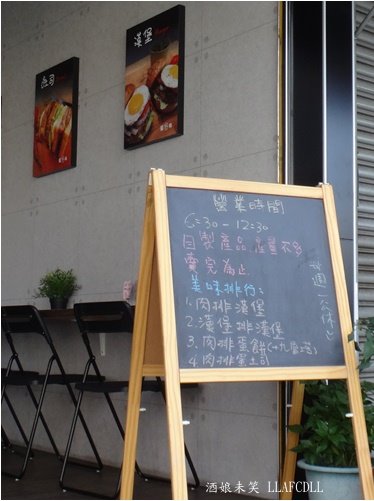 吐司
漢堡
營業時間
6:30-12:30
自製產品產量不多
賣完為止
美味排行:
1.肉排漢堡
2.漢堡排漢堡
3.肉排蛋餅(+九層塔)
4.肉排蛋土司
每週一公休
酒娘未笑 LLAFCDLL